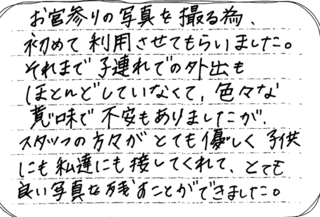 お宮参りの写真を撮る為、
初めて利用させてもらいました。
それまで子連れでの外出も
ほとんどしていなくて、色々な
意味で不安もありましたが、
スタッフの方々がとても優しく子供
にも私達にも接してくれて、とても
良い写真を残すことができました。